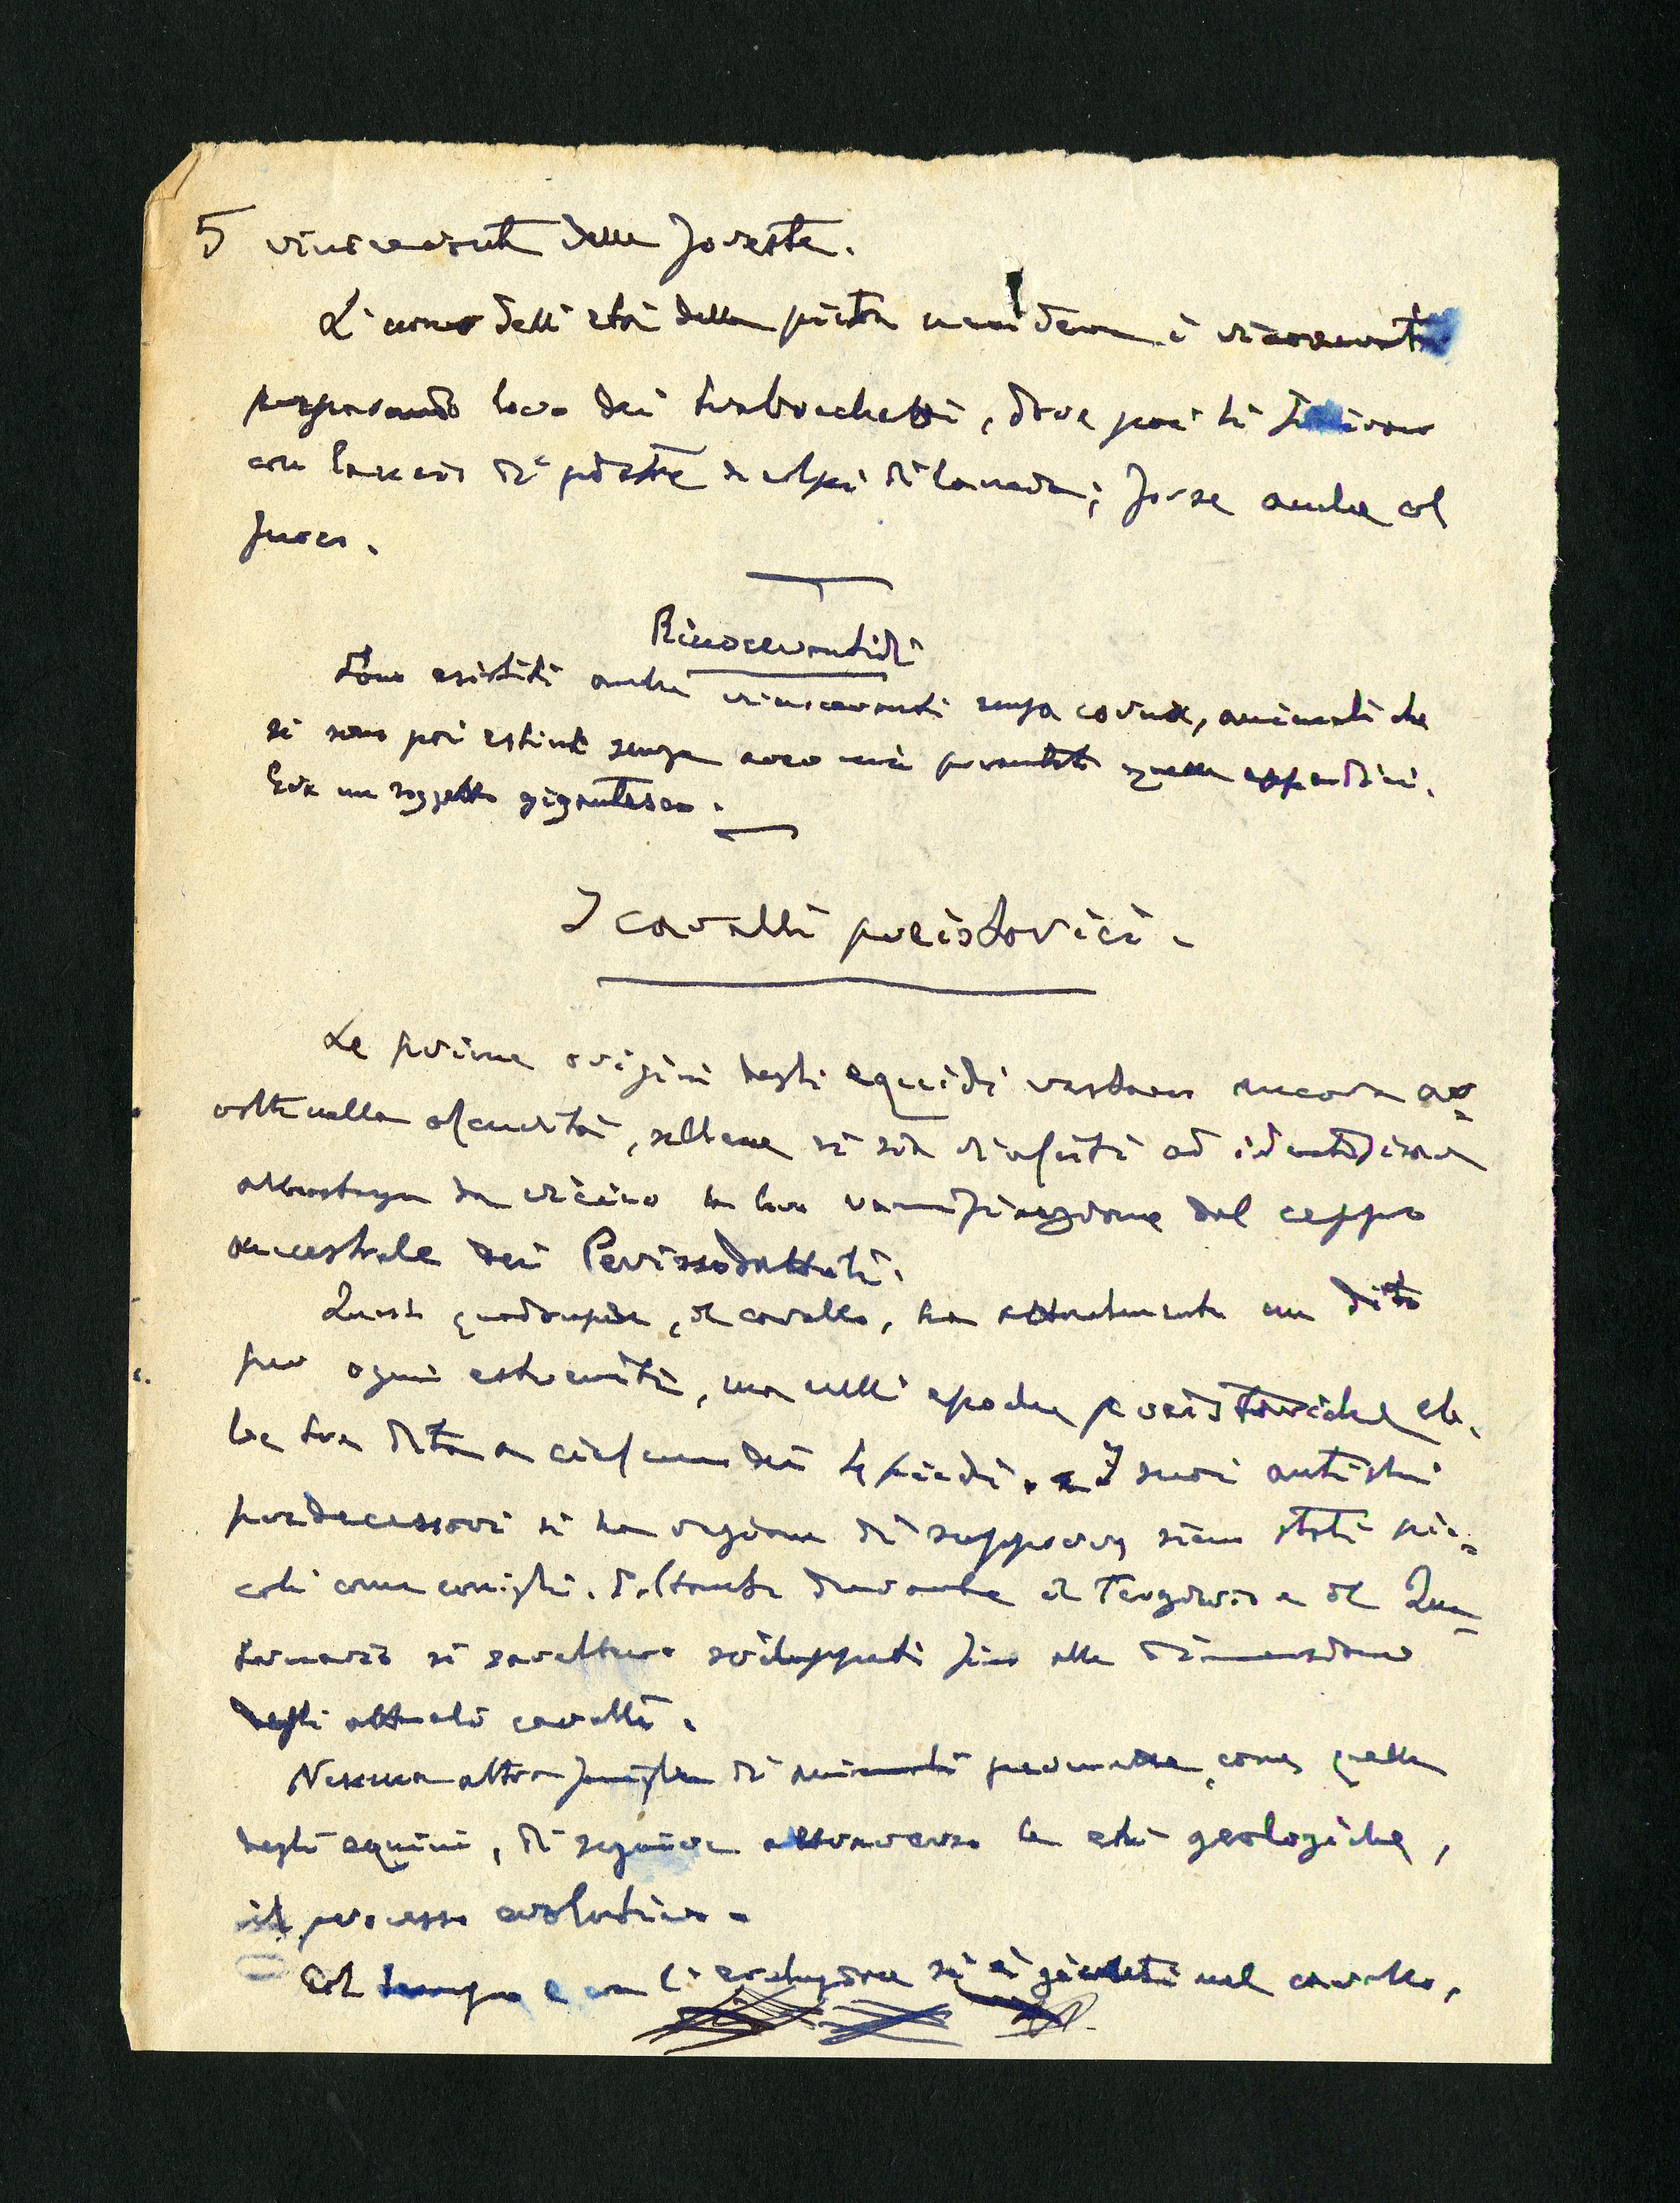 5 rinoceronte delle foreste.
L'uomo dell'età della pietra uccideva i rinoceronti
preparando loro dei trabocchetti, dove poi li finivano
con lancio di pietre e colpi di lancia; forse anche col
fuoco.
Rinocerontidi
Sono esistiti anche rinoceronti senza corna, animali che
si sono poi estinti senza aver mai presentato quelle appendici.
Era un soggetto gigantesco.
I cavalli preistorici.
Le prime origini degli equidi restano ancora av=
volte nella oscurità, sebbene si sia riusciti ad identificare
abbastanza da vicino la loro ramificazione dal ceppo
ancestrale dei Perissodattili.
Questo quadrupede, il cavallo, ha attualmente un dito
per ogni estremità, ma nelle epoche preistoriche eb=
be tre dita a ciascuno dei 4 piedi. I suoi antichi
predecessori si ha ragione di supporre siano stati pic=
coli come conigli. Soltanto durante il Terziario e il Qua=
ternario si sarebbero sviluppati fino alla dimensione
degli attuali cavalli.
Nessuna altra famiglia di animali permette, come quella
degli equini, di seguire attraverso le età geologiche,
il processo evolutivo.
Col tempo e con l'evoluzione si è giunti nel cavallo,